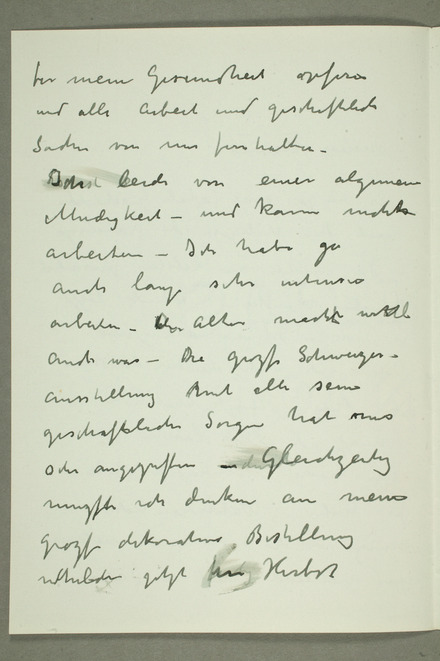 für meine Gesundheit opfern
und alle Arbeit und geschäftliche
Sachen von mir fernhalten –
Ich leide von einer algemeinen
Mudigkeit – und kann nichts
arbeiten – Ich habe ja
auch lange sehr intensiv
arbeiten – Das Alter macht wohl
auch was – Die grosse Schweizer-
ausstellung mit alle seine
geschäftlicher Sorgen hat mich
sehr angegriffen – Gleichzeitig
muszte ich denken an meine
grosze dekorative Bestellung
jetzt Herbst